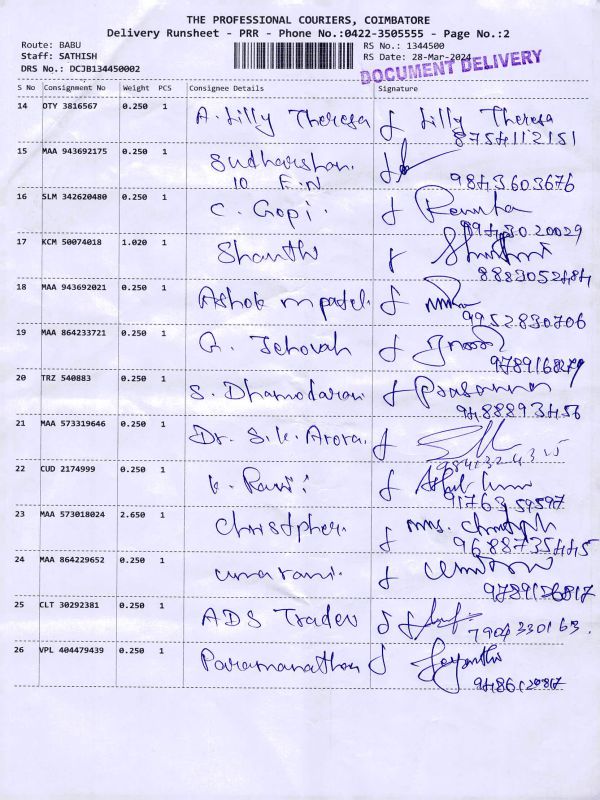 THE PROFESSIONAL COURIERS, COIMBATORE
Delivery Runsheet - PRR - Phone No.:0422-3505555 - Page No.:2
Route: BABU RS No.: 1344500
Staff: SATHISH RS Date: 28-Mar-2024
DRS No.: DCJB134450002 DOCUMENT DELIVERY
S No Consignment No Weight PCS Consignee Details Signature
14 DTY 3816567 0.250 1 A. Lilly Theresa Lilly Theresa
8754112151
15 MAA 943692175 0.250 1 Sudharshan.
10 E.N 9843603676
16 SLM 342620480 0.250 1 C. Gopi. Renuka
20029
17 KCM 50074018 1.020 1 Shanthi
8883052484
18 MAA 943692021 0.250 1 Ashok m patel.
9952830706
19 MAA 864233721 0.250 1 G. Jehovah
20 TRZ 540883 0.250 1 S. Dhamodaran Prasanna
9488893456
21 MAA 573319646 0.250 1 Dr. S.K. Arora.
22 CUD 2174999 0.250 1 K. Ravi
91763 59597
23 MAA 573018024 2.650 1 Christpher. mrs.
9688735445
24 MAA 864229652 0.250 1 umarani.
9789126817
25 CLT 30292381 0.250 1 ADS Trader
7904330163.
26 VPL 404479439 0.250 1 Paramanathan Jayanthi